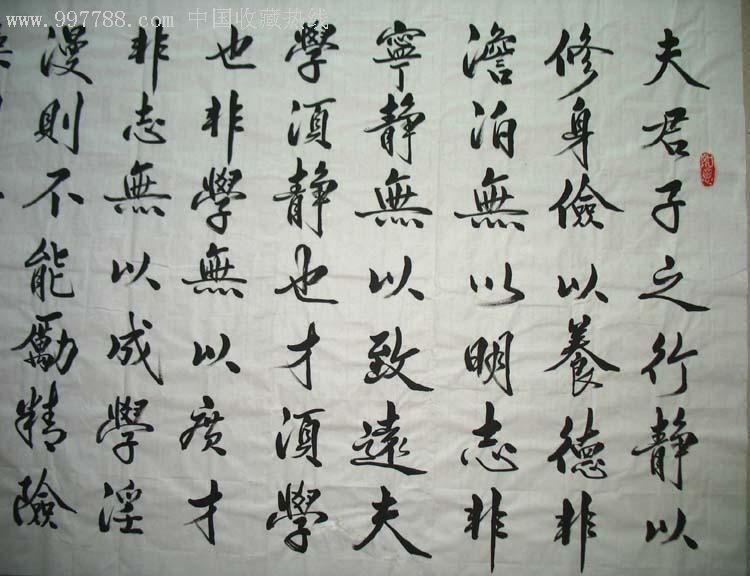 夫君子之行静以
修身儉以養德非
澹泊無以明志非
寧静無以致遠夫
學須静也才須學
也非學無以廣才
非志無以成學淫
漫則不能勵精險
www.997788.com 中国收藏热线